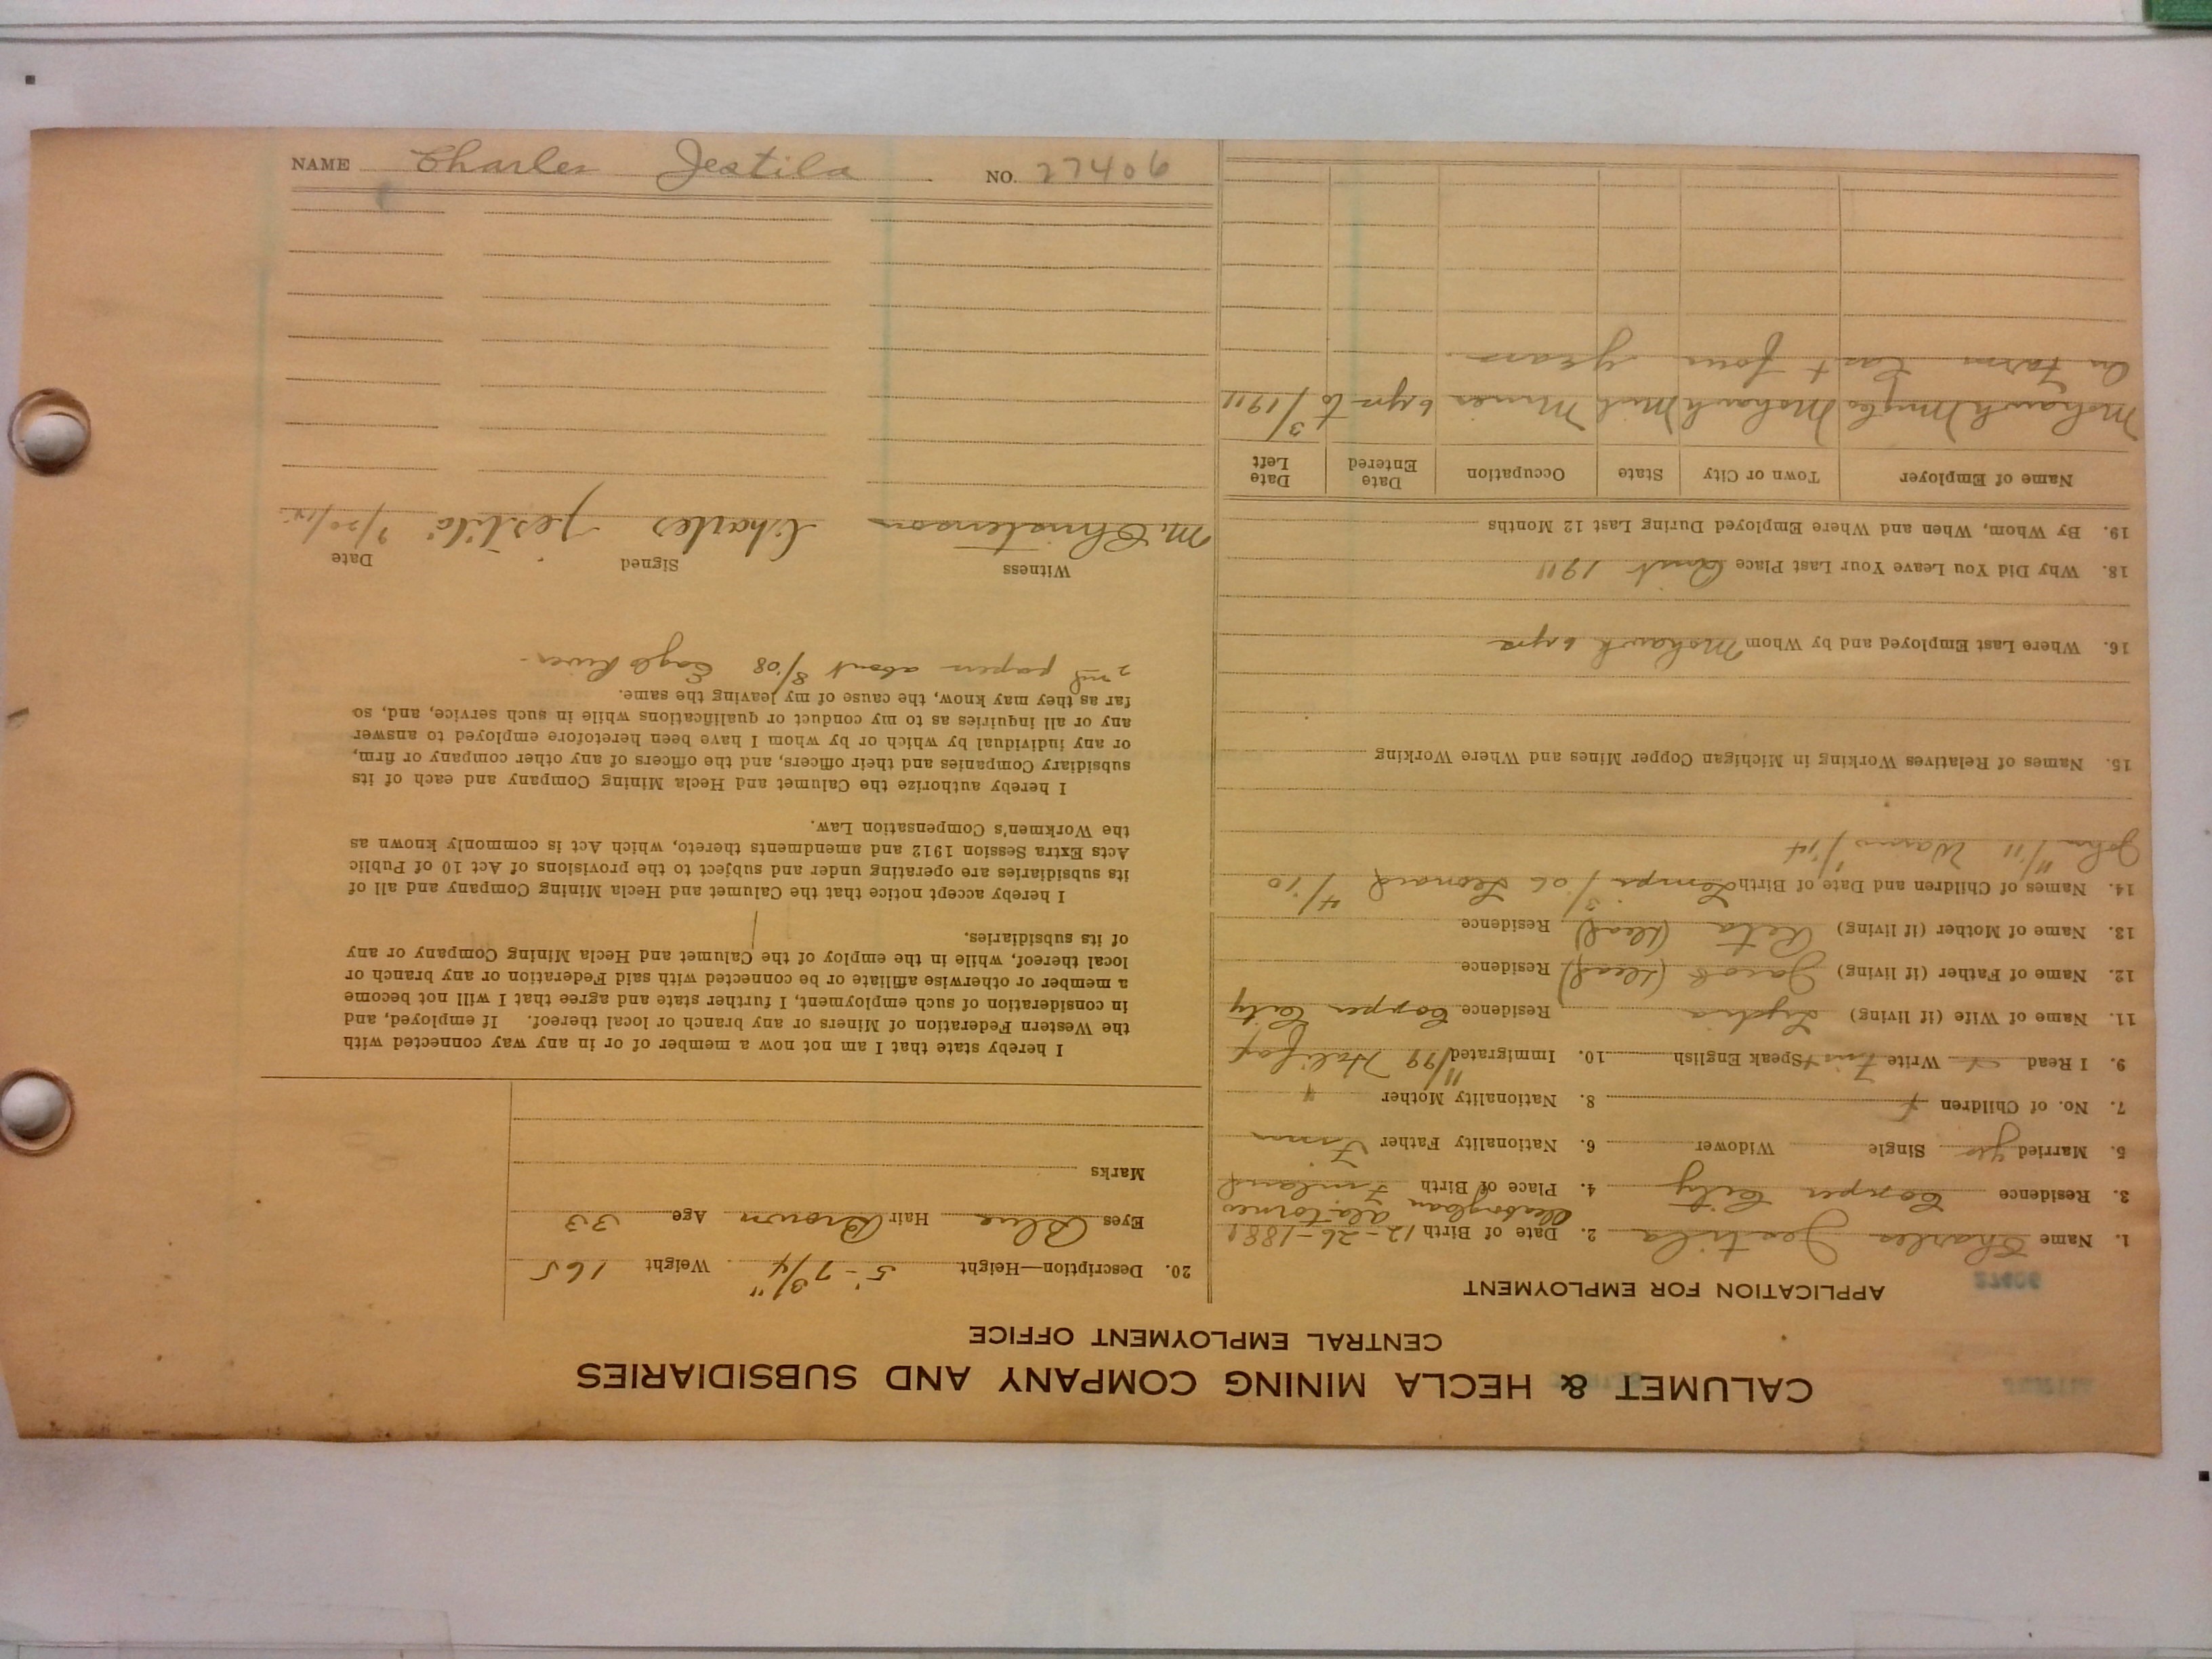 CALUMET & HECLA MINING COMPANY AND SUBSIDIARIES
CENTRAL EMPLOYMENT OFFICE
APPLICATION FOR EMPLOYMENT
27406
1. Name Charles Jestila 2. Date of Birth 12-26-1881
3. Residence Copper City 4. Place of Birth Finland
5. Married yes Single Widower 6. Nationality Father Finn
7. No. of Children 4 8. Nationality Mother "
9. I Read + Write Finn + Speak English 10. Immigrated 11/99 Halifax
11. Name of Wife (if living) Lydia Residence Copper City
12. Name of Father (if living) Jacob (dead) Residence
13. Name of Mother (if living) Reta (dead) Residence
14. Names of Children and Date of Birth 3/06 Leonard 4/10
John 11/11 Waino 1/14
15. Names of Relatives Working in Michigan Copper Mines and Where Working
16. Where Last Employed and by Whom Mohawk 6 yrs
18. Why Did You Leave Your Last Place Quit 1911
19. By Whom, When and Where Employed During Last 12 Months
Name of Employer Town or City State Occupation Date Entered Date Left
Mohawk Mng Co Mohawk Mich Miner 6 yrs to 3/1911
On Farm last four years.
20. Description—Height 5-7 3/4" Weight 165
Eyes Blue Hair Brown Age 33
Marks
I hereby state that I am not now a member of or in any way connected with
the Western Federation of Miners or any branch or local thereof. If employed, and
in consideration of such employment, I further state and agree that I will not become
a member or otherwise affiliate or be connected with said Federation or any branch or
local thereof, while in the employ of the Calumet and Hecla Mining Company or any
of its subsidiaries.
I hereby accept notice that the Calumet and Hecla Mining Company and all of
its subsidiaries are operating under and subject to the provisions of Act 10 of Public
Acts Extra Session 1912 and amendments thereto, which Act is commonly known as
the Workmen's Compensation Law.
I hereby authorize the Calumet and Hecla Mining Company and each of its
subsidiary Companies and their officers, and the officers of any other company or firm,
or any individual by which or by whom I have been heretofore employed to answer
any or all inquiries as to my conduct or qualifications while in such service, and, so
far as they may know, the cause of my leaving the same.
2nd papers about 8/08 Eagle River.
Witness Signed Date
M. Christenson Charles Jestila
NAME Charles Jestila NO. 27406